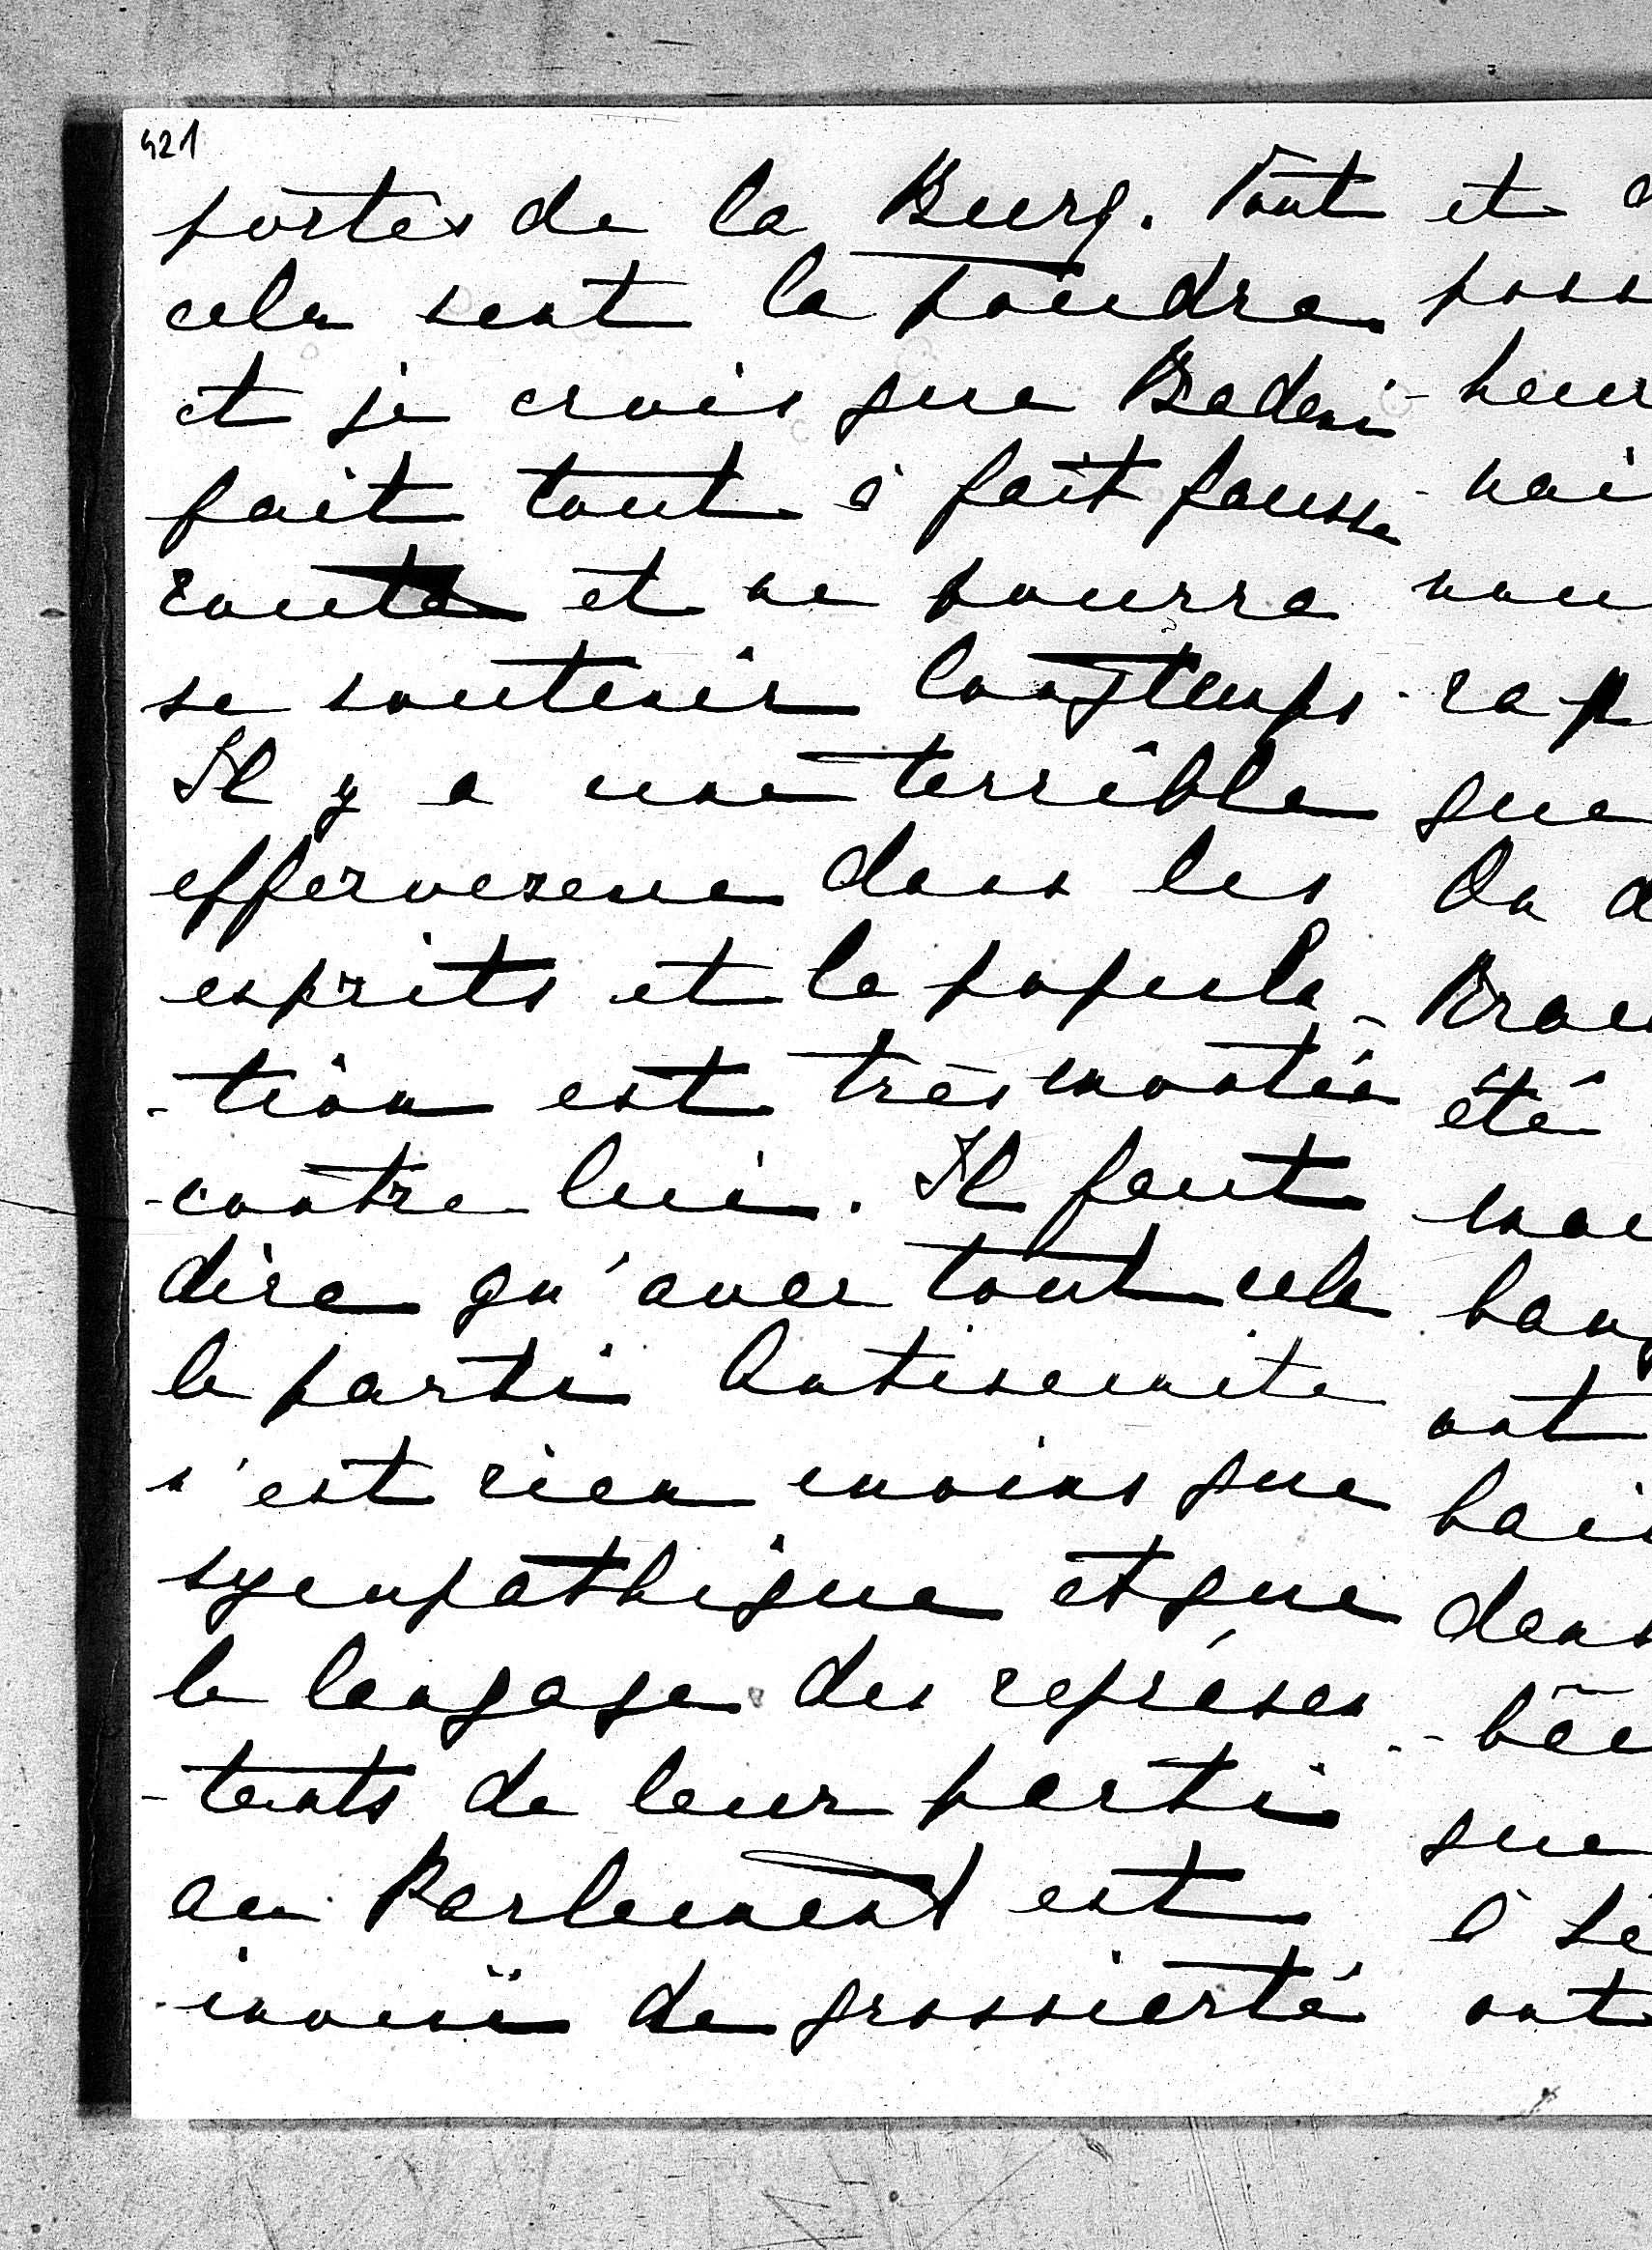 421
portes de la Burg. Tout
cela sent la poudre
et je crois que Badeni
fait tout à fait fausse
route et ne pourra
se soutenir longtemps.
Il y a une terrible
effervesence dans les
esprits et la popula-
-tion est très montée
contre lui. Il faut
dire qu'avec tout cela
le parti Antisemite
n'est rien moins que
sympathique et que
le langage des représen
-tants de leur parti
au Parlement est
inouï de grossierté
et
que
été
ont
que
ont